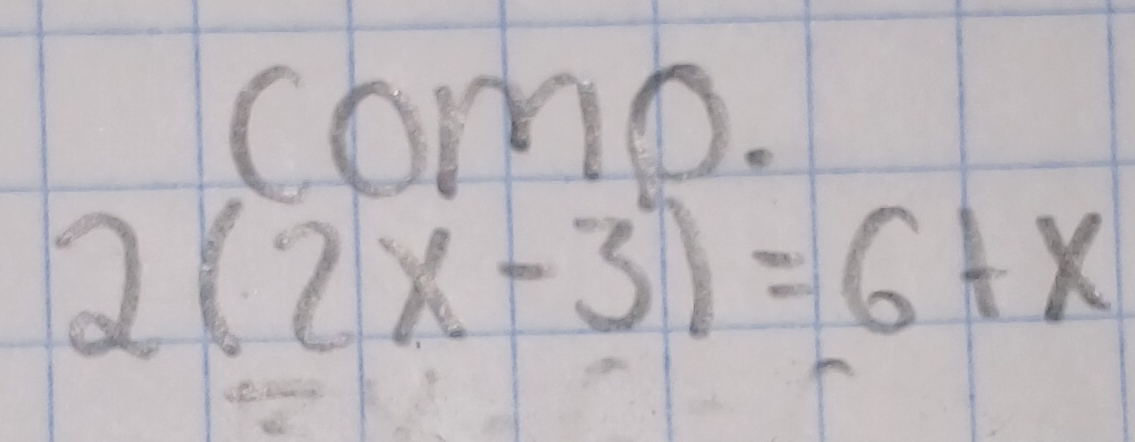 comp.
2(2x-3)=6+x